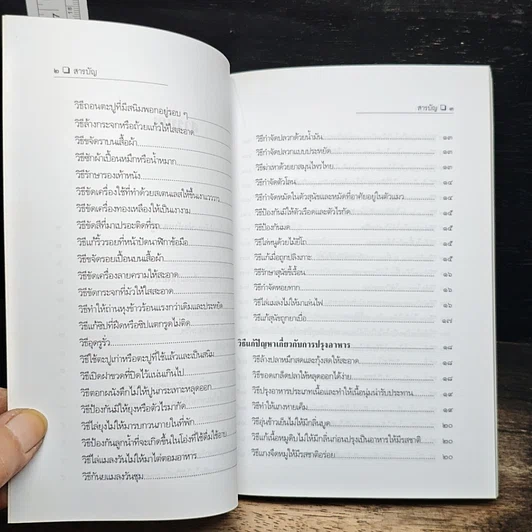 ๒ ❑ สารบัญ
วิธีถอนตะปูที่มีสนิมพอกอยู่รอบ ๆ
วิธีล้างกระจกหรือถ้วยแก้วให้ใสสะอาด
วิธีขจัดราบนเสื้อผ้า
วิธีซักผ้าเปื้อนหมึกหรือน้ำหมาก
วิธีรักษารองเท้าหนัง
วิธีขัดเครื่องใช้ที่ทำด้วยสเตนเลสให้ขึ้นเงาแวววาว
วิธีขัดเครื่องทองเหลืองให้เป็นเงางาม
วิธีขัดสีที่มาเปรอะติดที่รถ
วิธีแก้ริ้วรอยที่หน้าปัดนาฬิกาข้อมือ
วิธีขจัดรอยเปื้อนบนเสื้อผ้า
วิธีขัดเครื่องลายครามให้สะอาด
วิธีขัดกระจกที่มัวให้ใสสะอาด
วิธีทำให้ถ่านหุงข้าวร้อนแรงกว่าเดิมและประหยัด
วิธีแก้ซิปที่ฝืดหรือซิปแตกรูดไม่ติด
วิธีอุดรูรั่ว
วิธีใช้ตะปูเก่าหรือตะปูที่ใช้แล้วและเป็นสนิม
วิธีเปิดฝาขวดที่ปิดไว้แน่นเกินไป
วิธีตอกผนังตึกไม่ให้ปูนกระเทาะหลุดออก
วิธีป้องกันมิให้ยุงหรือตัวไรมากัด
วิธีไล่ยุงไม่ให้มารบกวนภายในที่พัก
วิธีป้องกันลูกน้ำที่จะเกิดขึ้นในโอ่งที่ใช้ดื่มใช้อาบ
วิธีไล่แมลงวันไม่ให้มาไต่ตอมอาหาร
วิธีกันบแมลงวันชุม
สารบัญ ❑ ๓
วิธีกำจัดปลวกด้วยน้ำมัน ๑๓
วิธีกำจัดปลวกแบบประหยัด ๑๓
วิธีฆ่าเหาด้วยยาสมุนไพรไทย ๑๓
วิธีกำจัดตัวโลน ๑๔
วิธีกำจัดหมัดในตัวสุนัขและหมัดที่อาศัยอยู่ในตัวแมว ๑๔
วิธีป้องกันมิให้ตัวเรือดและตัวไรกัด ๑๕
วิธีป้องกันมด ๑๕
วิธีไล่หนูด้วยไม้ยี่โถ ๑๕
วิธีแก้เมื่อถูกปลิงเกาะ ๑๕
วิธีรักษาสุนัขขี้เรื้อน ๑๖
วิธีกำจัดหอยทาก ๑๖
วิธีไล่แมลงไม่ให้มาเล่นไฟ ๑๖
วิธีแก้สุนัขถูกยาเบื่อ ๑๗
วิธีแก้ปัญหาเกี่ยวกับการปรุงอาหาร ๑๘
วิธีล้างปลาหมึกสดและกุ้งสดให้สะอาด ๑๘
วิธีขอดเกล็ดปลาให้หลุดออกได้ง่าย ๑๘
วิธีปรุงอาหารประเภทเนื้อและทำให้เนื้อนุ่มน่ารับประทาน ๑๙
วิธีทำให้แกงหายเค็ม ๑๙
วิธีอุ่นข้าวเย็นไม่ให้มีกลิ่นบูด ๒๐
วิธีแก้เนื้อหมูดิบไม่ให้มีกลิ่นก่อนปรุงเป็นอาหารให้มีรสชาติ ๒๐
วิธีแกงจืดหมูให้มีรสชาติอร่อย ๒๐